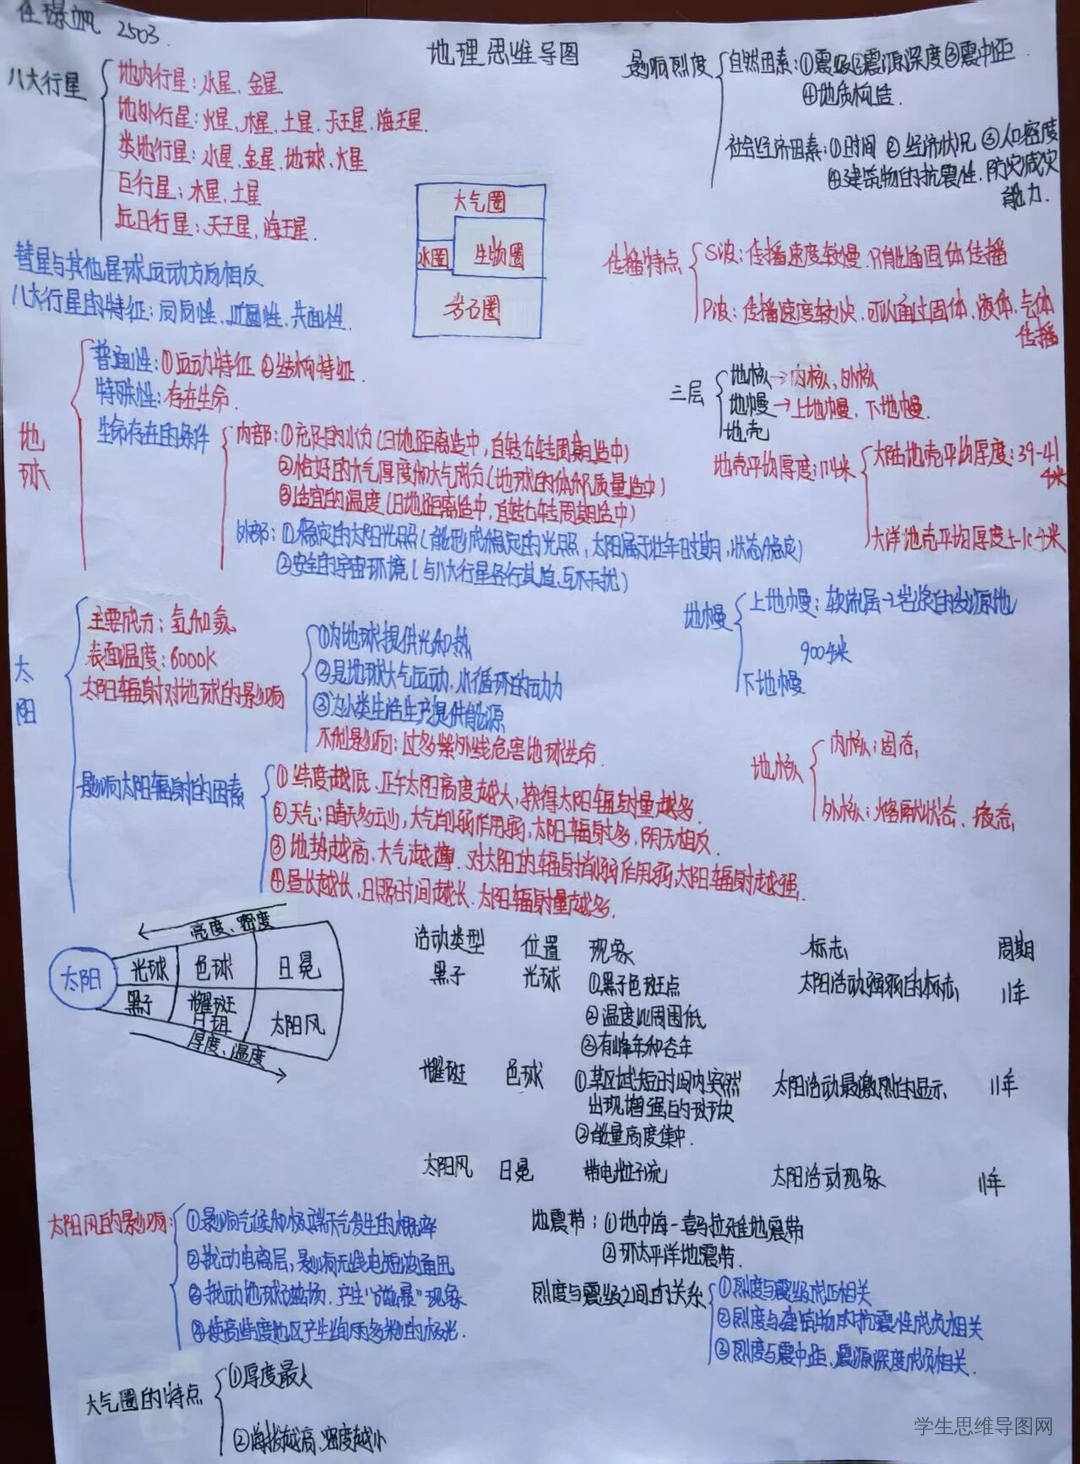 2503.
地理思维导图
八大行星
地内行星:水星、金星
地外行星:火星、木星、土星、天王星、海王星.
类地行星:水星、金星、地球、火星
巨行星:木星、土星
远日行星:天王星、海王星.
彗星与其他星球运动方向相反
八大行星的特征:同向性、近圆性、共面性.
大气圈
水圈
生物圈
岩石圈
影响烈度
自然因素:①震级②震源深度③震中距
④地质构造.
社会经济因素:①时间 ②经济状况 ③人口密度
④建筑物的抗震性、防灾减灾
能力.
传播特点
S波:传播速度较慢.只能通固体传播
P波:传播速度较快.可以通过固体、液体、气体
传播
地球
普通性:①运动特征 ②结构特征.
特殊性:存在生命.
生命存在的条件
内部:①充足的水分(日地距离适中,自转公转周期适中)
②恰好的大气厚度和大气成分(地球的体积质量适中)
③适宜的温度(日地距离适中,自转公转周期适中)
外部:①稳定的太阳光照(能形成稳定的光照,太阳属于壮年时期,状态稳定)
②安全的宇宙环境(与八大行星各行其道、互不干扰)
三层
地核→内核、外核
地幔→上地幔、下地幔.
地壳
地壳平均厚度:17千米
大陆地壳平均厚度:39-41
千米
大洋地壳平均厚度5-10千米
地幔
上地幔:软流层→岩浆的发源地
900千米
下地幔
地核
内核:固态,
外核:熔融状态、液态,
太阳
主要成分:氢和氦
表面温度:6000K
太阳辐射对地球的影响
①为地球提供光和热
②是地球大气运动、水循环的动力
③为人类生活生产提供能源
不利影响:过多紫外线危害地球生命.
影响太阳辐射的因素
①纬度越低、正午太阳高度越大,获得太阳辐射量越多.
②天气:晴天多云少,大气削弱作用弱,太阳辐射多,阴天相反.
③地势越高、大气越薄.对太阳的辐射削弱作用弱,太阳辐射越强.
④昼长越长,日照时间越长.太阳辐射量越多.
亮度、密度
太阳
光球
色球
日冕
黑子
耀斑
日珥
太阳风
厚度、温度
活动类型 位置 现象 标志 周期
黑子 光球 ①黑子色斑点 太阳活动强弱的标志, 11年
②温度比周围低
③有峰年和谷年
耀斑 色球 ①某区域短时间内突然 太阳活动最激烈的显示, 11年
出现增强白的斑块
②能量高度集中.
太阳风 日冕 带电粒子流 太阳活动现象 11年
太阳风的影响:
①影响气候和极端天气发生的概率
②扰动电离层,影响无线电短波通讯
③扰动地球磁场.产生“磁暴”现象
④使高纬度地区产生绚丽多彩的极光.
地震带:①地中海-喜马拉雅地震带
②环太平洋地震带.
烈度与震级之间的关系
①烈度与震级成正相关
②烈度与建筑物的抗震性成负相关
③烈度与震中距、震源深度成负相关.
大气圈的特点
①厚度最大
②海拔越高,密度越小
学生思维导图网